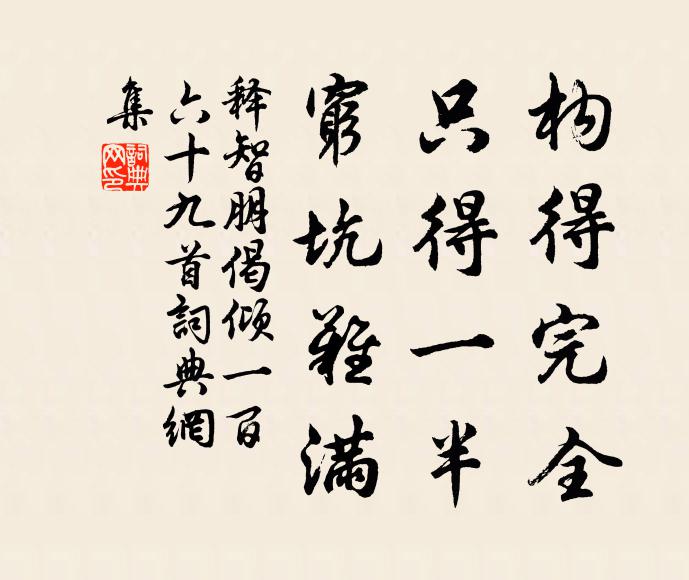 构得完全
只得一半
窮坑難滿
释智朋偈倾一百
六十九首詞典網
集
詞典
网印